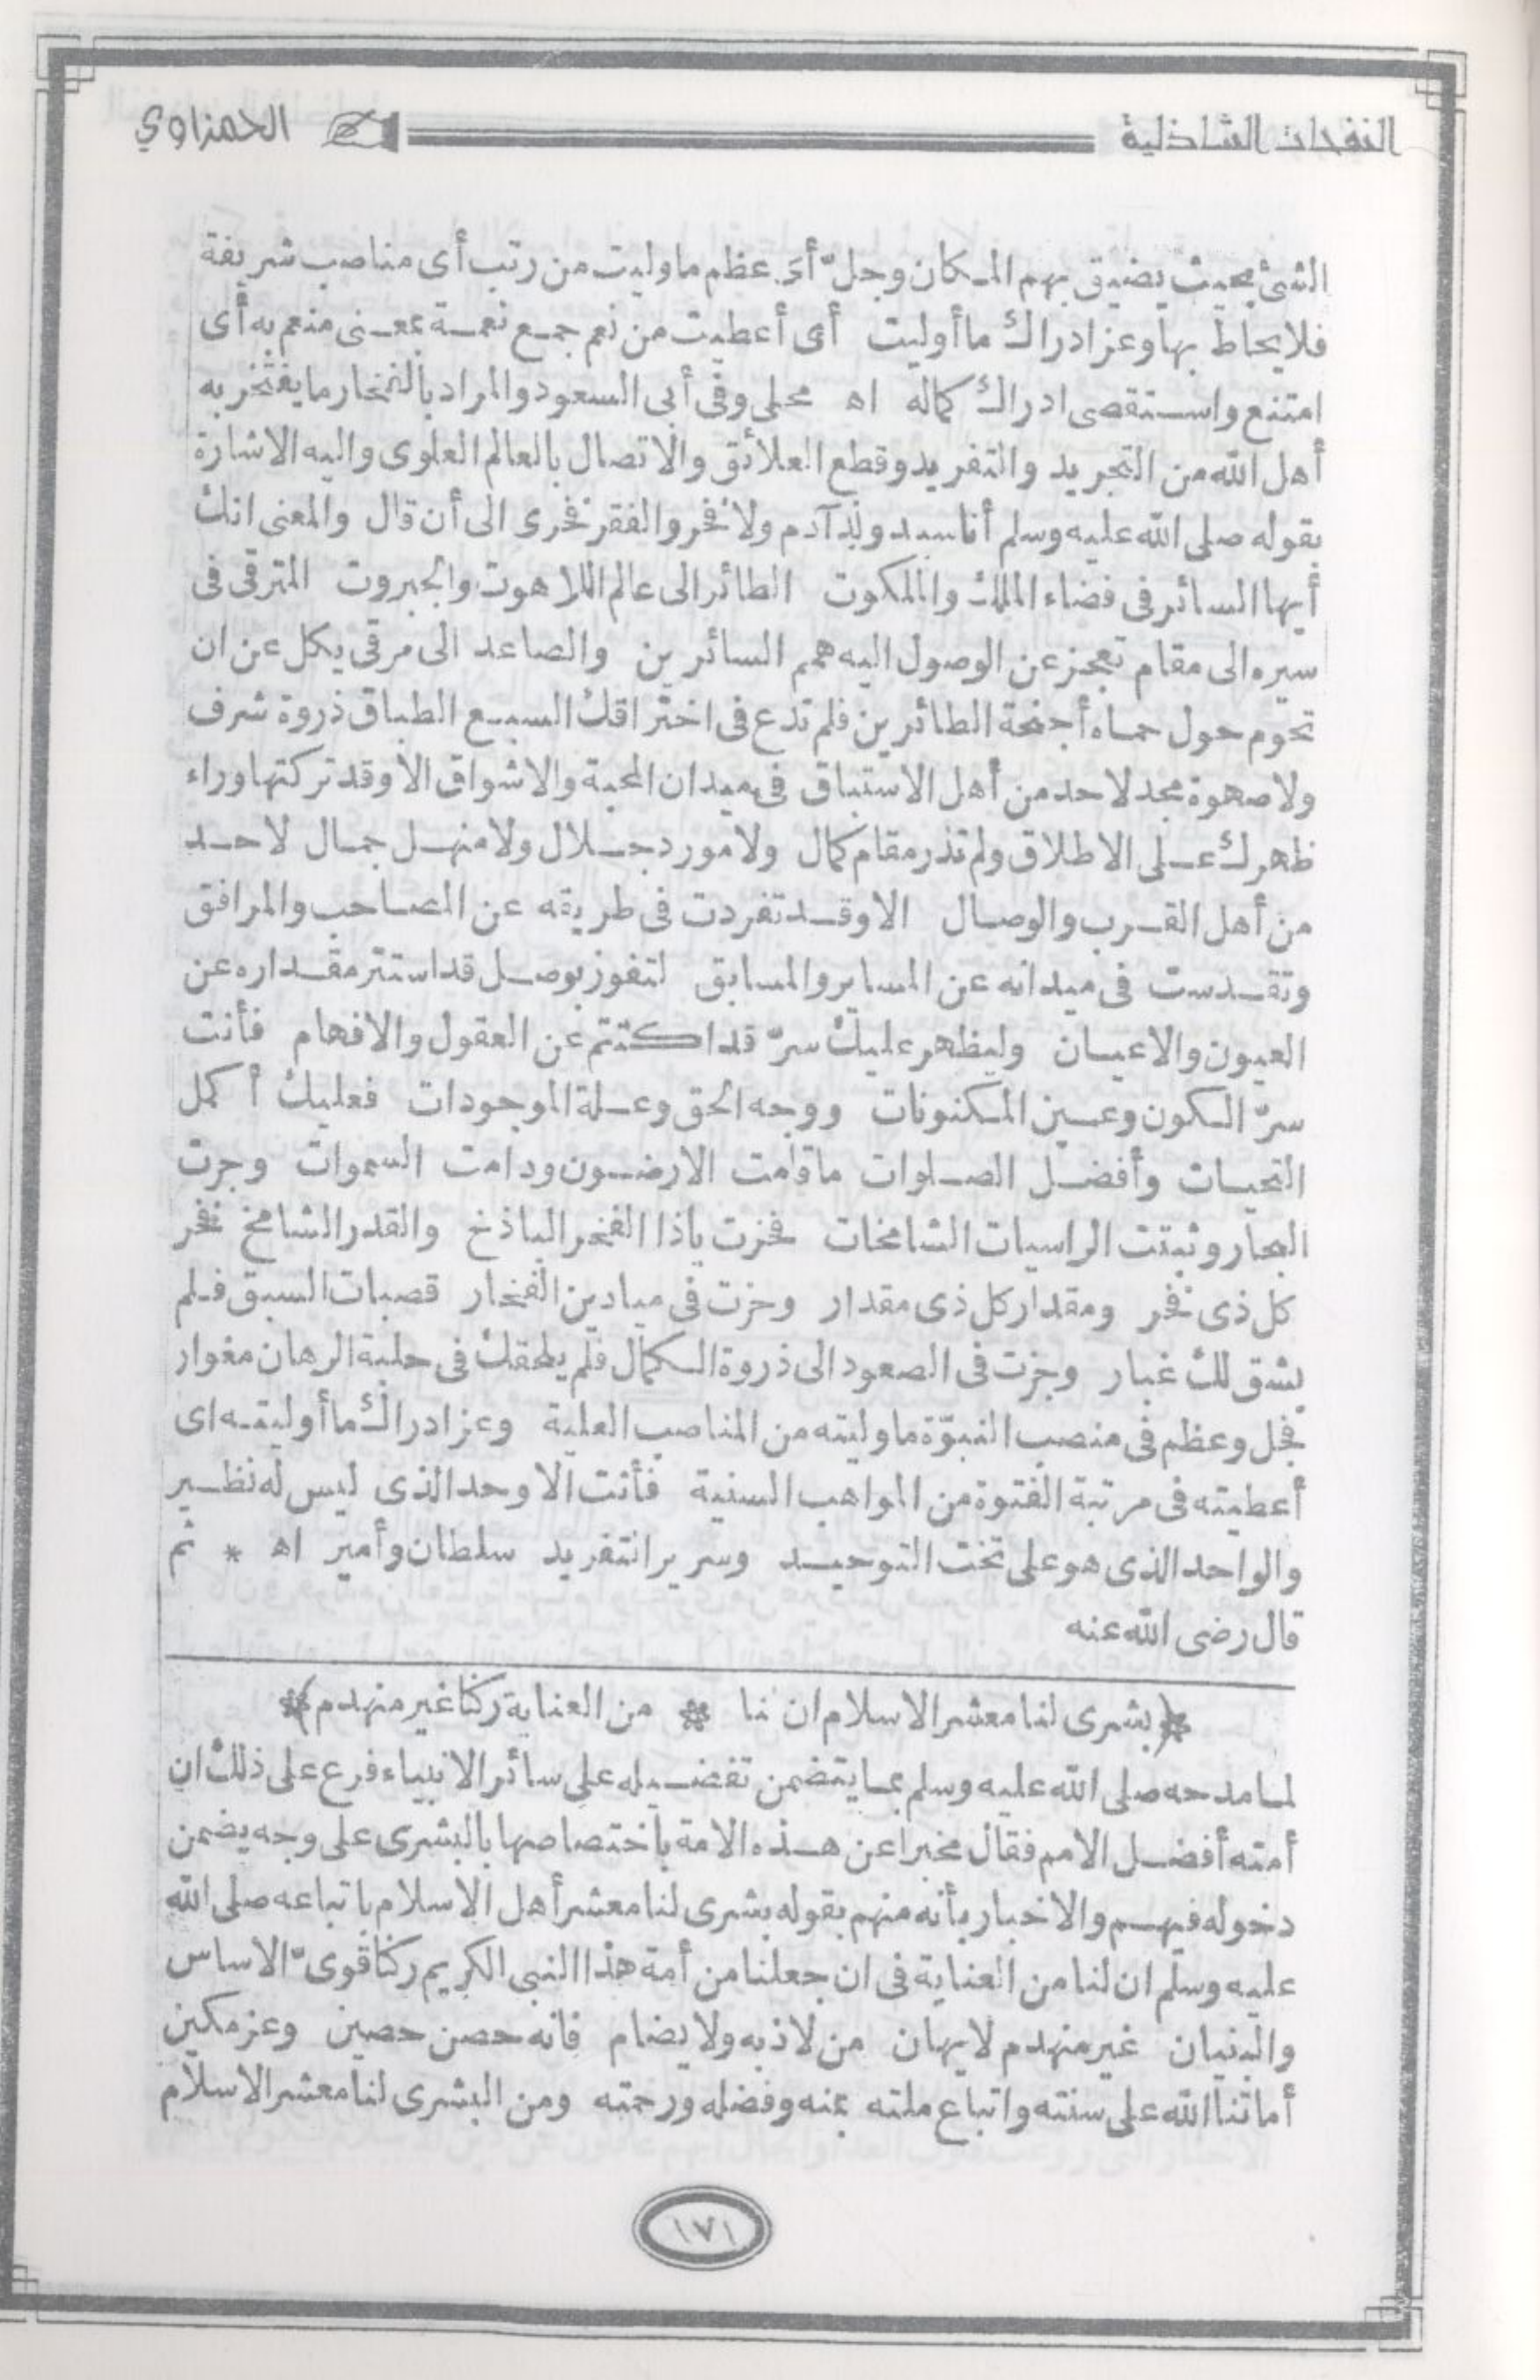 النفحات الشاذلية الحمزاوي
الشئ بحيث يضيق بهم المكان وجلّ أى عظم ما وليت من رتب أى مناصب شريفة
فلا يحاط بها وعز ادراك ما أوليت أى أعطيت من نعم جمع نعمة بمعنى منعم به أى
امتنع واستقصى ادراك كماله اه محلى وفى أبى السعود والمراد بالفخار ما يفتخر به
أهل الله من التجريد والتفريد وقطع العلائق والاتصال بالعالم العلوى واليه الاشارة
بقوله صلى الله عليه وسلم أنا سيد ولد آدم ولا فخر والفقر فخرى الى أن قال والمعنى انك
أيها السائر فى فضاء الملك والملكوت الطائر الى عالم اللاهوت والجبروت المترقى فى
سيره الى مقام تعجز عن الوصول اليه همم السائرين والصاعد الى مرقى يكل عن ان
تحوم حول حماه أجنحة الطائرين فلم تدع فى اختراقك السبع الطباق ذروة شرف
ولا صهوة مجد لاحد من أهل الاستباق فى ميدان المحبة والاشواق الا وقد تركتها وراء
ظهرك على الاطلاق ولم تذر مقام كمال ولا مورد جلال ولا منهل جمال لاحد
من أهل القرب والوصال الا وقد تفردت فى طريقه عن المصاحب والمرافق
وتقدست فى ميدانه عن المساير والمسابق لتفوز بوصل قد استتر مقداره عن
العيون والاعيان وليظهر عليك سرّ قد اكتتم عن العقول والافهام فأنت
سرّ الكون وعين المكنونات ووجه الحق وعلة الموجودات فعليك أكمل
التحيات وأفضل الصلوات ما قامت الارضون ودامت السموات وجرت
البحار وثبتت الراسيات الشامخات فحزت ياذا الفخر الباذخ والقدر الشامخ فخر
كل ذى فخر ومقدار كل ذى مقدار وحزت فى ميادين الفخار قصبات السبق فلم
يشق لك غبار وجزت فى الصعود الى ذروة الكمال فلم يلحقك فى حلبة الرهان مغوار
فجل وعظم فى منصب النبوّة ما وليته من المناصب العلية وعز ادراك ما أوليته اى
أعطيته فى مرتبة الفتوة من المواهب السنية فأنت الاوحد الذى ليس له نظير
والواحد الذى هو على تخت التوحيد وسرير التفريد سلطان وأمير اه * ثم
قال رضى الله عنه
﴿بشرى لنا معشر الاسلام ان لنا * من العناية ركنا غير منهدم﴾
لما مدحه صلى الله عليه وسلم بما يتضمن تفضيله على سائر الانبياء فرع على ذلك ان
أمته أفضل الامم فقال مخبرا عن هذه الامة باختصاصها بالبشرى على وجه يضمن
دخوله فيهم والاخبار بأنه منهم بقوله بشرى لنا معشر أهل الاسلام باتباعه صلى الله
عليه وسلم ان لنا من العناية فى ان جعلنا من أمة هذا النبى الكريم ركنا قوىّ الاساس
والبنيان غير منهدم لا يهان من لاذ به ولا يضام فانه حصن حصين وعز مكين
أماتنا الله على سنته واتباع ملته بمنه وفضله ورحمته ومن البشرى لنا معشر الاسلام
١٧١